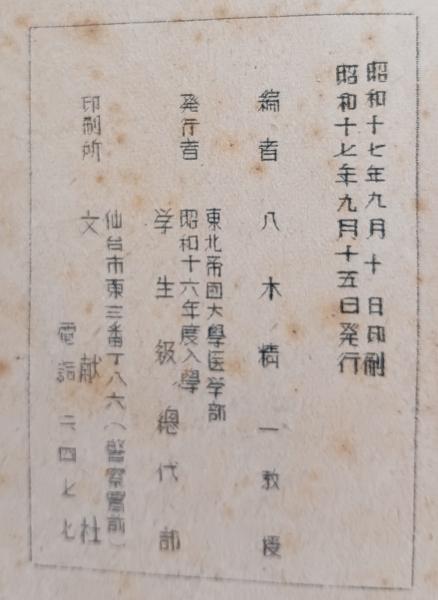 昭和十七年九月十日印刷
昭和十七年九月十五日発行
編者 八木精一教授
発行者 東北帝国大學医学部
昭和十六年度入學
学生級總代部
印刷所 仙台市東三番丁八六(警察署前)
文献社
電話 二四七七